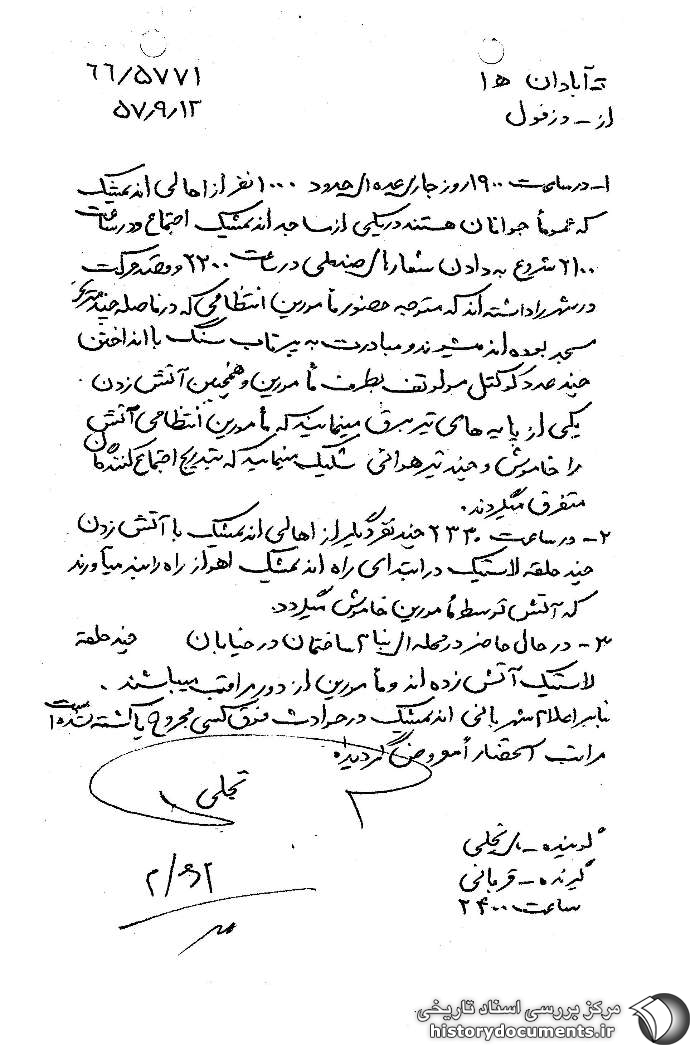 به آبادان ه ۱
۶۶/۵۷۷۱
از - دزفول
۵۷/۹/۱۲
۱- در ساعت ۱۹۰۰ روز جاری عده ای حدود ۱۰۰۰ نفر از اهالی اندیمشک
که عموماً جوانان هستند در یکی از مساجد اندیمشک اجتماع و در ساعت
۲۱۰۰ شروع به دادن شعارهای ضد ملی در ساعت ۲۲۰۰ و قصد حرکت
در شهر را داشته اند که متوجه حضور مأمورین انتظامی که در فاصله چند متری
مسجد بوده اند میشوند و مبادرت به پرتاب سنگ با انداختن
چند عدد کوکتل مولوتف بطرف مأمورین و همچنین آتش زدن
یکی از پایه های تیر برق مینمایند که مأمورین انتظامی آتش
را خاموش و چند تیر هوائی شلیک مینمایند که بتدریج اجتماع کنندگان
متفرق میگردند.
۲- در ساعت ۲۳۳۰ چند نفر دیگر از اهالی اندیمشک با آتش زدن
چند حلقه لاستیک در ابتدای راه اندیمشک اهواز راه را بند میآورند
که آتش توسط مأمورین خاموش میگردد.
۳- در حال حاضر در محله ای بنام ساختمان در خیابان چند حلقه
لاستیک آتش زده اند و مأمورین از دور مراقب میباشند.
بنابر اعلام شهربانی اندیمشک در حوادث فوق کسی مجروح یا کشته نشده است
مراتب استحضاراً معروض گردید
تجلی
گوینده - تجلی
گیرنده - قربانی
ساعت ۲۴۰۰
مرکز بررسی اسناد تاریخی
historydocuments.ir